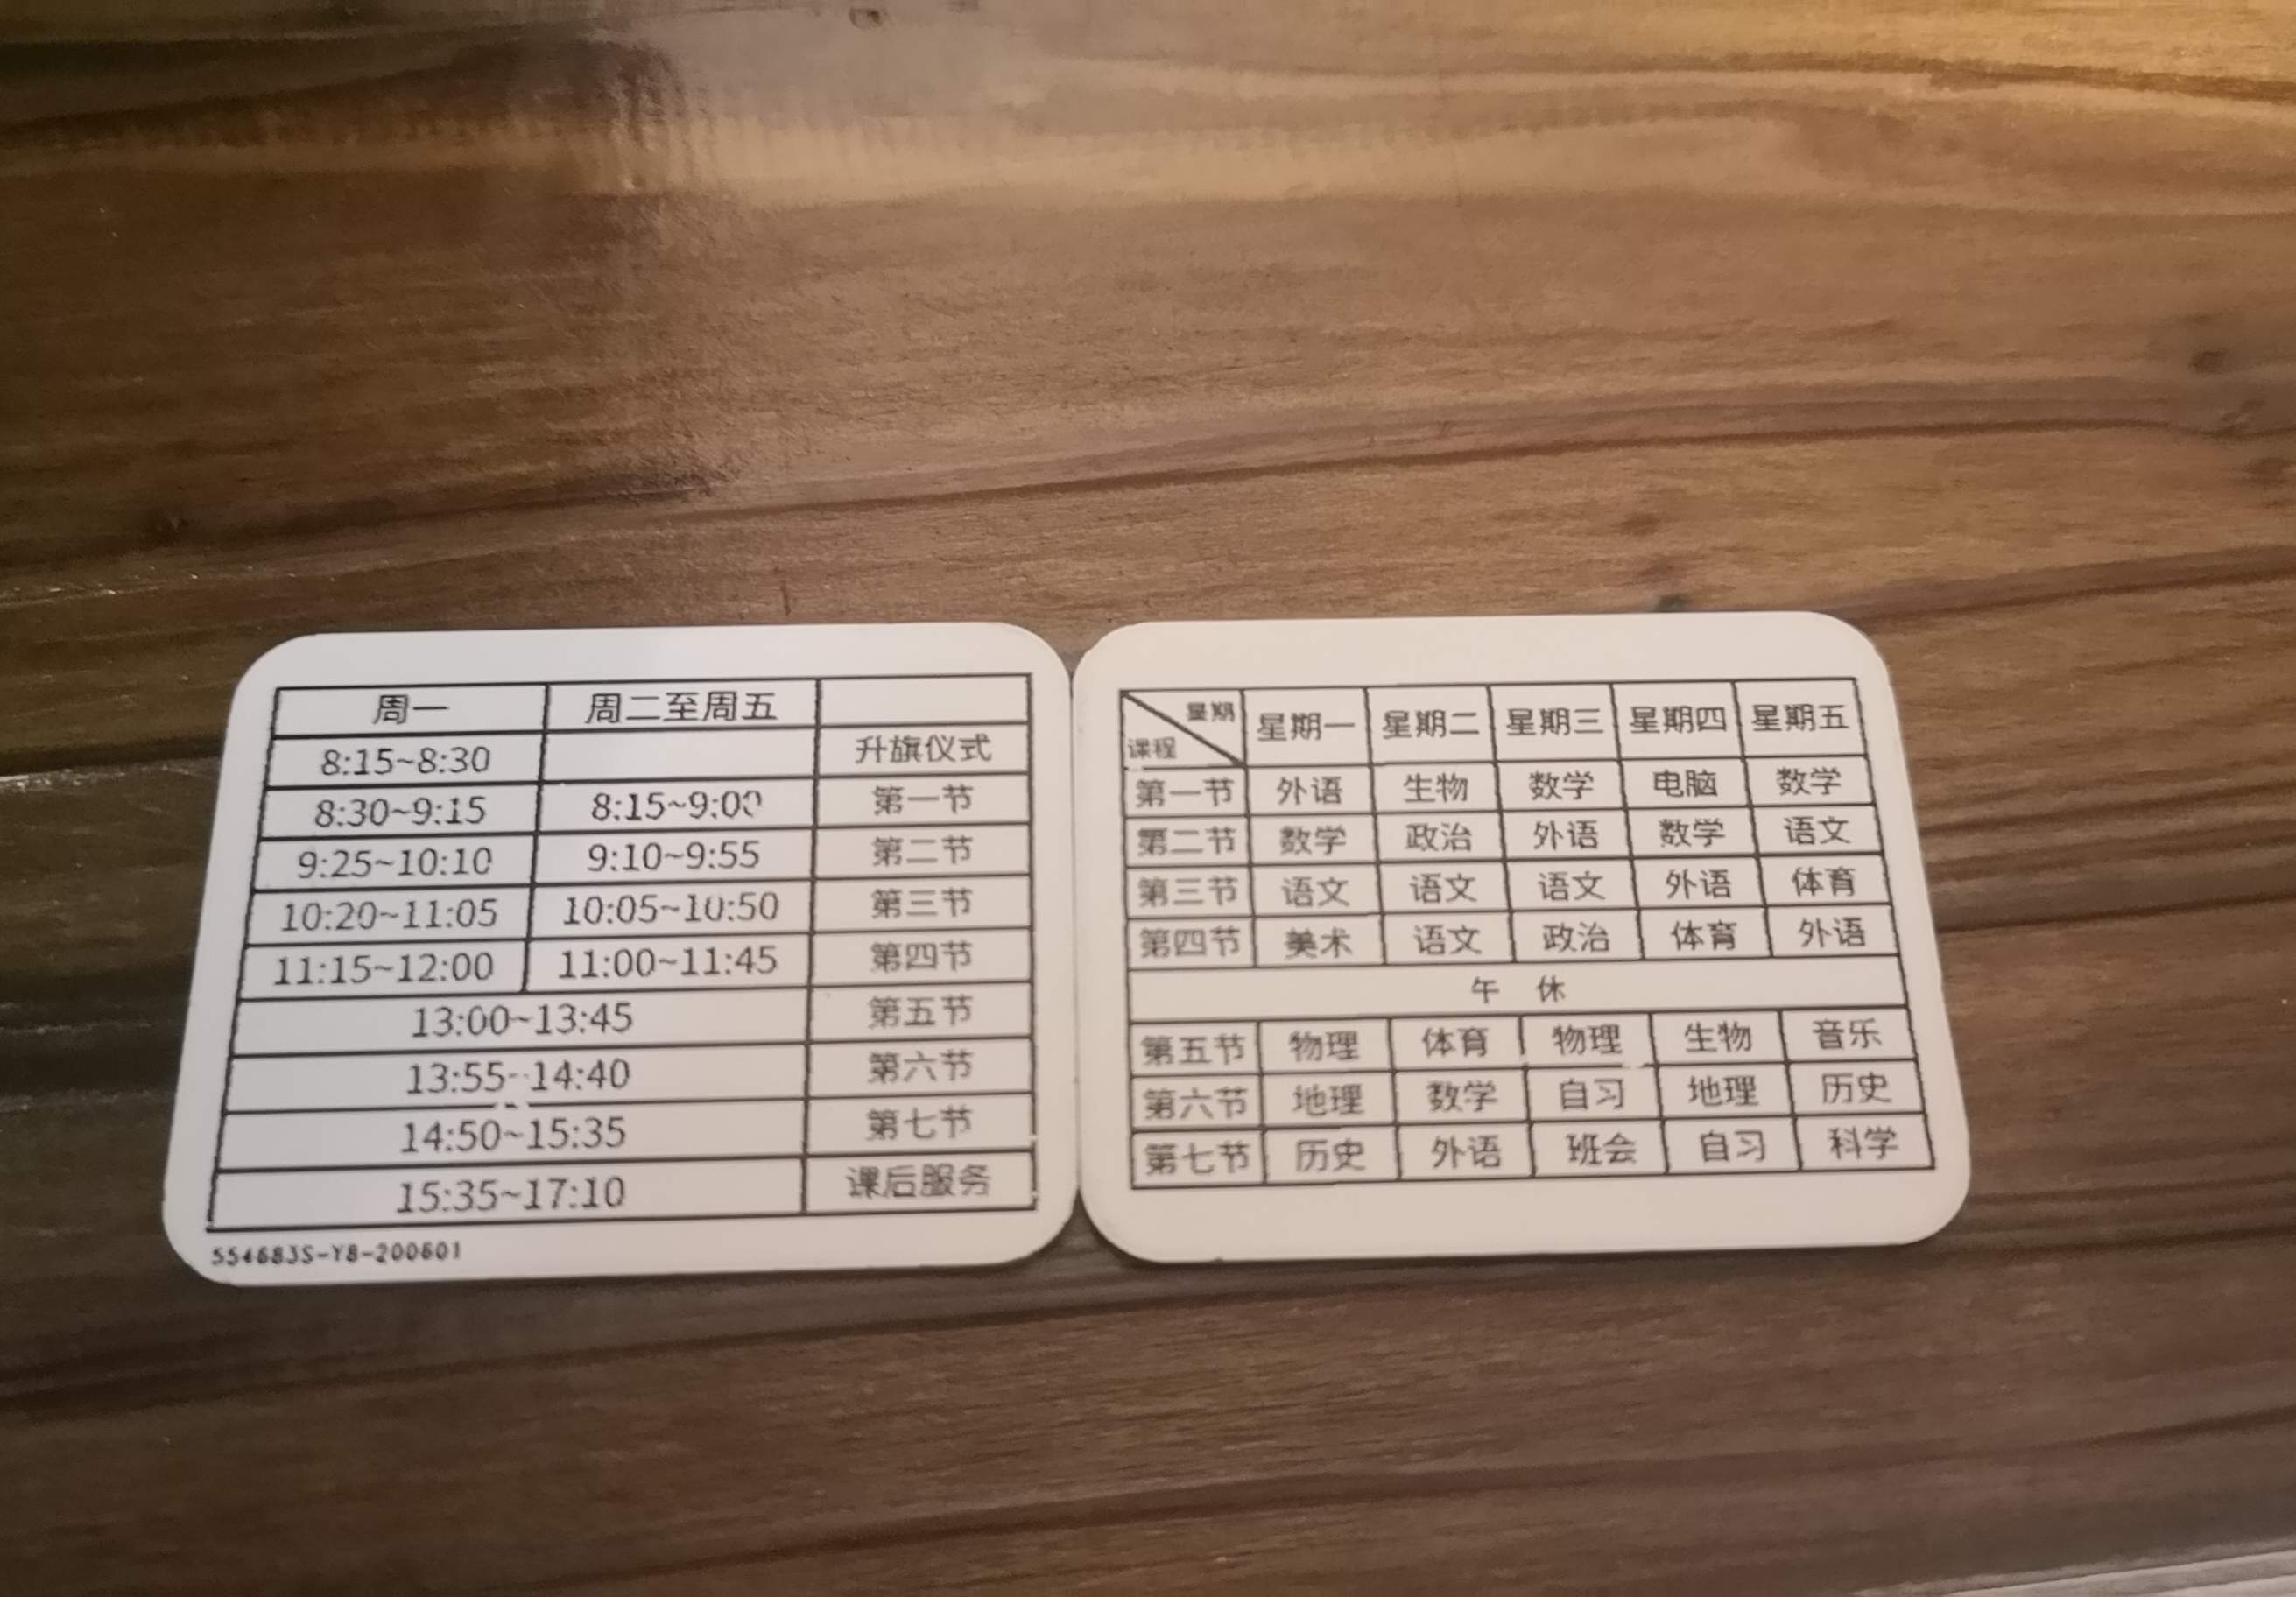 周一 周二至周五
8:15~8:30 升旗仪式
8:30~9:15 8:15~9:00 第一节
9:25~10:10 9:10~9:55 第二节
10:20~11:05 10:05~10:50 第三节
11:15~12:00 11:00~11:45 第四节
13:00~13:45 第五节
13:55~14:40 第六节
14:50~15:35 第七节
15:35~17:10 课后服务
554683S-Y8-200601
星期
课程 星期一 星期二 星期三 星期四 星期五
第一节 外语 生物 数学 电脑 数学
第二节 数学 政治 外语 数学 语文
第三节 语文 语文 语文 外语 体育
第四节 美术 语文 政治 体育 外语
午 休
第五节 物理 体育 物理 生物 音乐
第六节 地理 数学 自习 地理 历史
第七节 历史 外语 班会 自习 科学